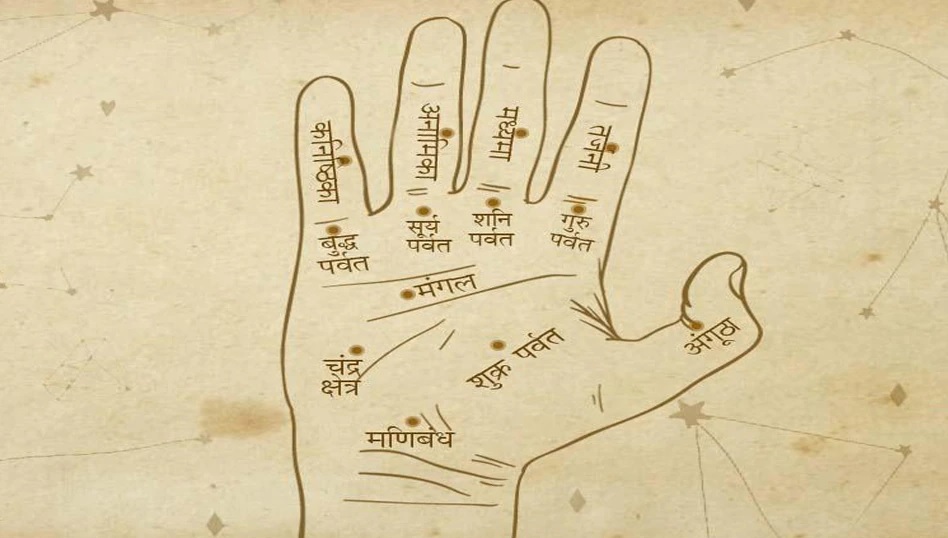 कनिष्ठिका
अनामिका
मध्यमा
तर्जनी
बुद्ध
पर्वत
सूर्य
पर्वत
शनि
पर्वत
गुरु
पर्वत
मंगल
चंद्र
क्षेत्र
शुक्र पर्वत
अंगूठा
मणिबंध